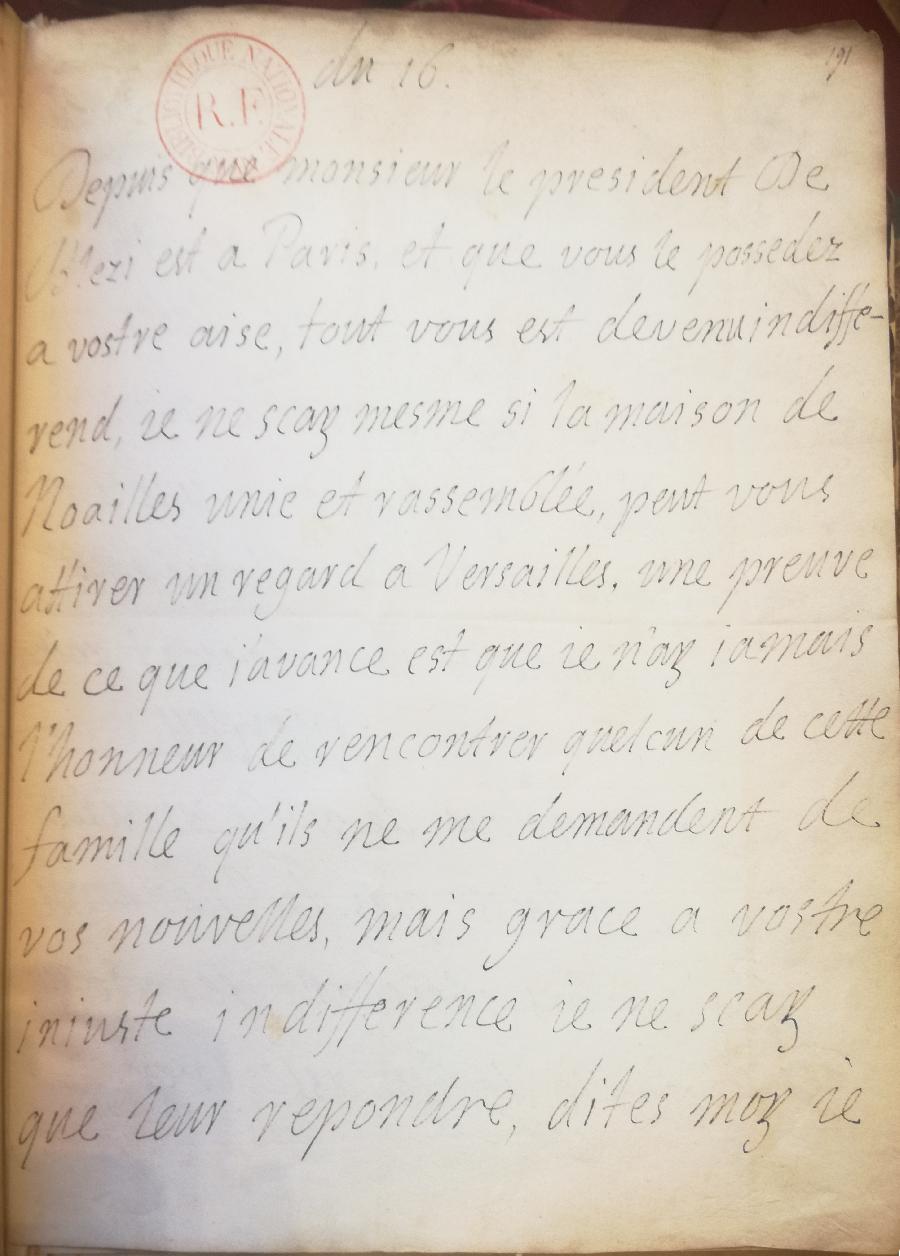 du 16.
191
BIBLIOTHEQUE NATIONALE
R.F.
Depuis que monsieur le president De
est a Paris, et que vous le possedez
a vostre aise, tout vous est devenu indiffe-
rend, ie ne scay mesme si la maison de
Noailles unie et rassemblée, peut vous
attirer un regard a Versailles. une preuve
de ce que i'avance est que ie n'ay iamais
l'honneur de rencontrer quelcun de cette
famille qu'ils ne me demandent de
vos nouvelles, mais grace a vostre
iniuste indifference ie ne scay
que leur repondre, dites moy ie